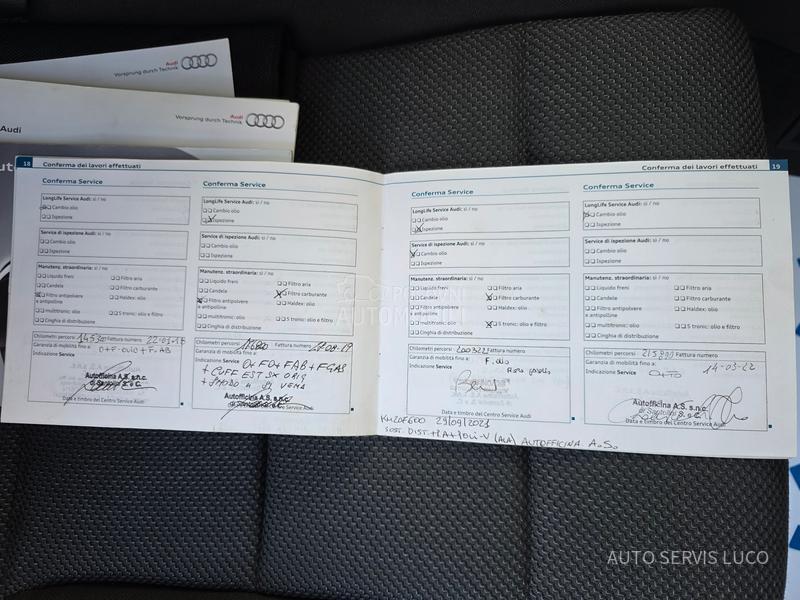 Audi
Vorsprung durch Technik
Audi
Vorsprung durch Technik
Audi
18 Conferma dei lavori effettuati
Conferma Service
LongLife Service Audi: sì / no
Cambio olio
Ispezione
Service di ispezione Audi: sì / no
Cambio olio
Ispezione
Manutenz. straordinaria: sì / no
Liquido freni
Candele
Filtro antipolvere
e antipolline
multitronic: olio
Cinghia di distribuzione
Filtro aria
Filtro carburante
Haldex: olio
S tronic: olio e filtro
Chilometri percorsi Fattura numero
Garanzia di mobilità fino a: O+F-OLIO+F-AB
Indicazione Service
Autofficina A.S. s.n.c.
Data e timbro del Centro Service Audi
Conferma Service
LongLife Service Audi: sì / no
Cambio olio
Ispezione
Service di ispezione Audi: sì / no
Cambio olio
Ispezione
Manutenz. straordinaria: sì / no
Liquido freni
Candele
Filtro antipolvere
e antipolline
multitronic: olio
Cinghia di distribuzione
Filtro aria
Filtro carburante
Haldex: olio
S tronic: olio e filtro
Chilometri percorsi Fattura numero
Garanzia di mobilità fino a:
Indicazione Service O+FO+FAB+FGAS
+CUFF EST SX ORIG
Autofficina A.S. s.n.c.
Data e timbro del Centro Service Audi
Conferma dei lavori effettuati 19
Conferma Service
LongLife Service Audi: sì / no
Cambio olio
Ispezione
Service di ispezione Audi: sì / no
Cambio olio
Ispezione
Manutenz. straordinaria: sì / no
Liquido freni
Candele
Filtro antipolvere
e antipolline
multitronic: olio
Cinghia di distribuzione
Filtro aria
Filtro carburante
Haldex: olio
S tronic: olio e filtro
Chilometri percorsi 200322 Fattura numero
Garanzia di mobilità fino a: F. olio
Indicazione Service
Data e timbro del Centro Service Audi
29/09/2021
AUTOFFICINA A.S.
Conferma Service
LongLife Service Audi: sì / no
Cambio olio
Ispezione
Service di ispezione Audi: sì / no
Cambio olio
Ispezione
Manutenz. straordinaria: sì / no
Liquido freni
Candele
Filtro antipolvere
e antipolline
multitronic: olio
Cinghia di distribuzione
Filtro aria
Filtro carburante
Haldex: olio
S tronic: olio e filtro
Chilometri percorsi Fattura numero
Garanzia di mobilità fino a:
Indicazione Service O+FO 14-03-22
Autofficina A.S. s.n.c.
di Santolini S. e C.
Data e timbro del Centro Service Audi
AUTO SERVIS LUCO